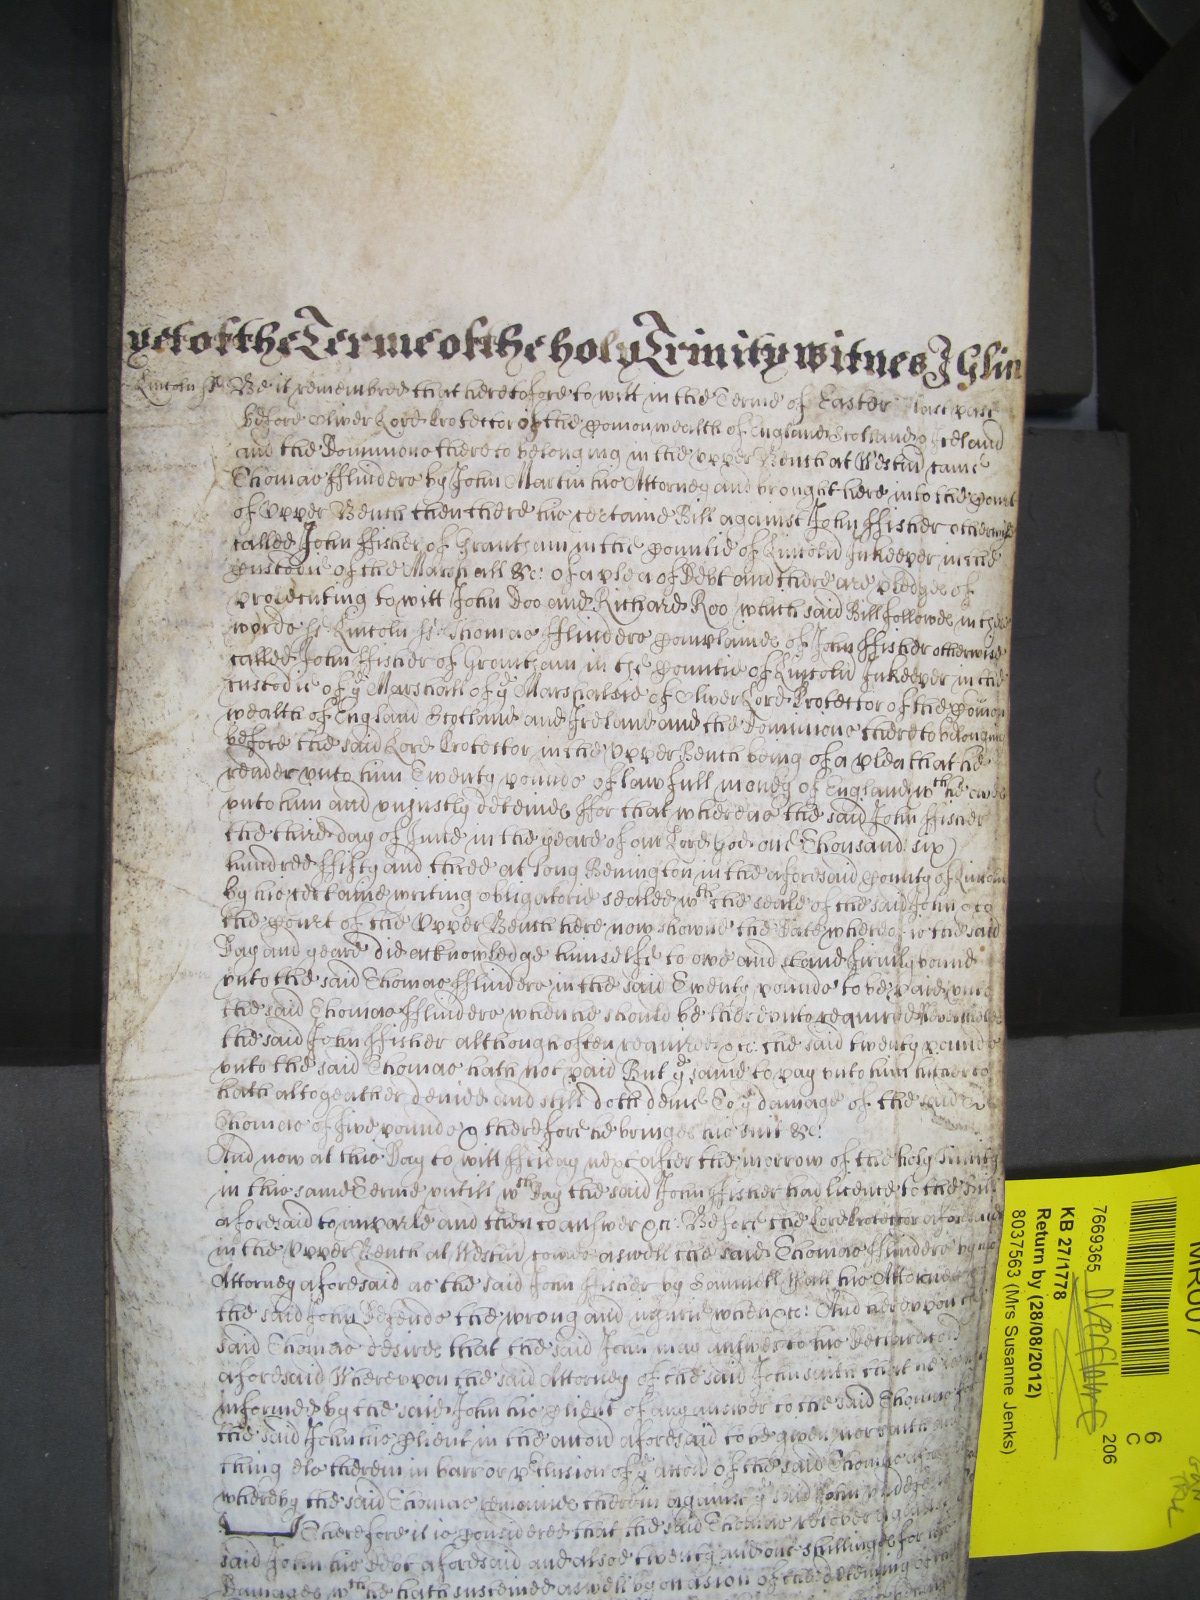 yet of the Terme of the holy Trinity witnes J Glin
Lincoln ss Be it remembred that heretofore to witt in the Terme of Easter last past
before Oliver Lord Protector of the Comonwealth of England Scotland & Ireland
and the Dominions thereto belonging in the Upper Bench at Westm came
Thomas fflinders by John Martin his Attorney and brought here into the Court
of Upper Bench then there his certaine Bill against John ffisher otherwise
called John ffisher of Grantham in the Countie of Lincoln Inkeeper in the
Custodie of the Marshall &c: of a plea of Debt and there are pledges of
prosecuting to witt John Doo and Richard Roo which said Bill followes in these
words ss Lincoln ss Thomas fflinders Complaines of John ffisher otherwise
called John ffisher of Grantham in the Countie of Lincoln Inkeeper in the
custodie of ye Marshall of ye Marshalsie of Oliver Lord Protector of the Comon
wealth of England Scotland and Ireland and the Dominions thereto belonging
before the said Lord Protector in the Upper Bench being of a plea that he
render unto him Twenty pounds of lawfull money of England wch he owes
unto him and unjustly deteines ffor that whereas the said John ffisher
the third day of June in the yeare of our Lord God one Thousand six
hundred ffifty and three at long Benington in the aforesaid County of Lincoln
by his certaine writing obligatorie sealed wth the seale of the said John &c to
the Court of the Upper Bench here now showne the Date whereof is the said
Day and yeare did acknowledge himselfe to owe and stand firmly bound
unto the said Thomas fflinders in the said Twenty pounds to be paid unto
the said Thomas fflinders when he should be thereunto required Neverthelesse
the said John ffisher although often required &c: the said twenty pounds
unto the said Thomas hath not paid But ye same to pay unto him hitherto
hath altogeather denied and still doth denie To ye damage of the said
Thomas of five pounds & therefore he bringes his suit &c:
And now at this Day to witt ffriday next after the morrow of the holy Trinity
in this same Terme untill wch day the said John ffisher had licence to the Bill
aforesaid to imparle and then to answer &c: Before the Lord Protector aforesaid
in the Upper Bench at Westm comes aswell the said Thomas fflinders by his
Attorney aforesaid as the said John ffisher by Samuell Wall his Attorney
the said John Defends the wrong and injurie when &c: And hereupon the
said Thomas desires that the said John may answer to his Declaration
aforesaid Whereupon the said Attorney of the said John saith that he is not
informed by the said John his Client of any answer to the said Thomas for
the said John his Client in the accon aforesaid to be given nor saith any
thing els therein in barr or preclusion of ye accon of the said Thomas aforesaid
whereby the said Thomas remaines therein against ye said John
Therefore it is Considered that the said Thomas recover against
said John his Debt aforesaid and alsoe twenty and one shillinges for his
Damages wch he hath susteined aswell by occasion of the deteining
MR007
7669365
KB 27/1778
Return by (28/08/2012)
8037563 (Mrs Susanne Jenks)
206
6
C